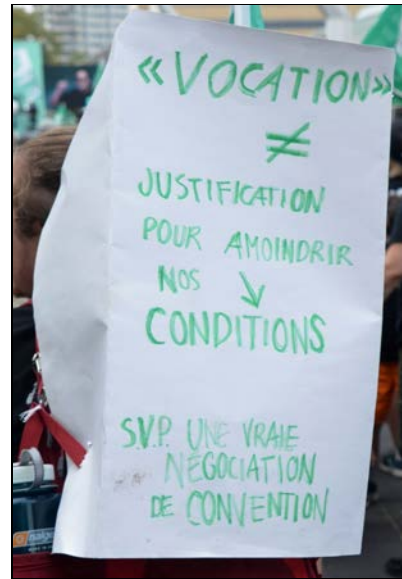 « VOCATION »
≠
JUSTIFICATION
POUR AMOINDRIR
NOS ↘
CONDITIONS
S.V.P. UNE VRAIE
NÉGOCIATION
DE CONVENTION
nalgene